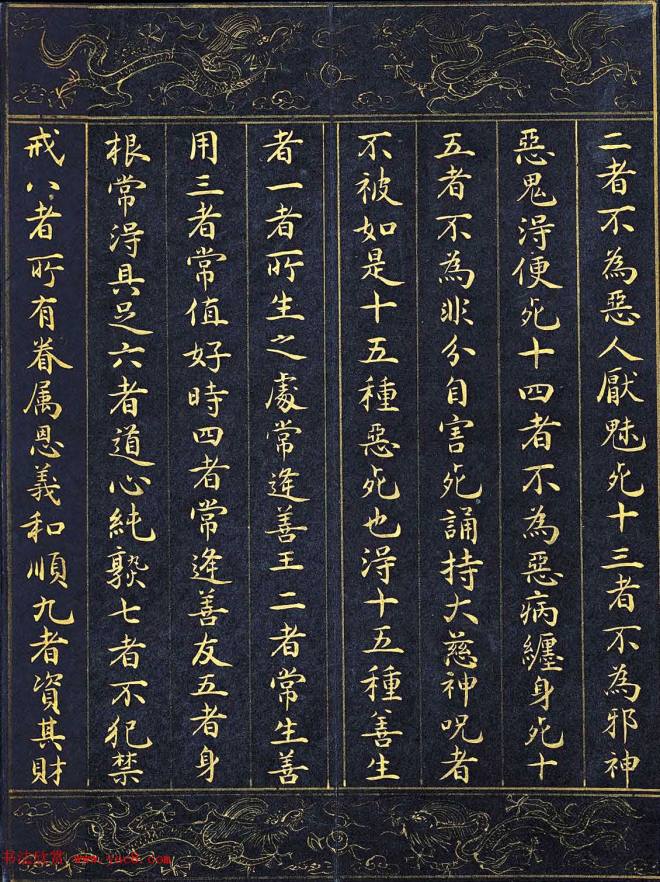 二者不為惡人厭魅死十三者不為邪神
惡鬼淂便死十四者不為惡病纒身死十
五者不為非分自害死誦持大慈神呪者
不被如是十五種惡死也淂十五種善生
者一者所生之處常逢善王二者常生善
用三者常值好時四者常逢善友五者身
根常淂具足六者道心純熟七者不犯禁
戒八者所有眷属恩義和順九者資其財
书法欣赏 www.yac8.com